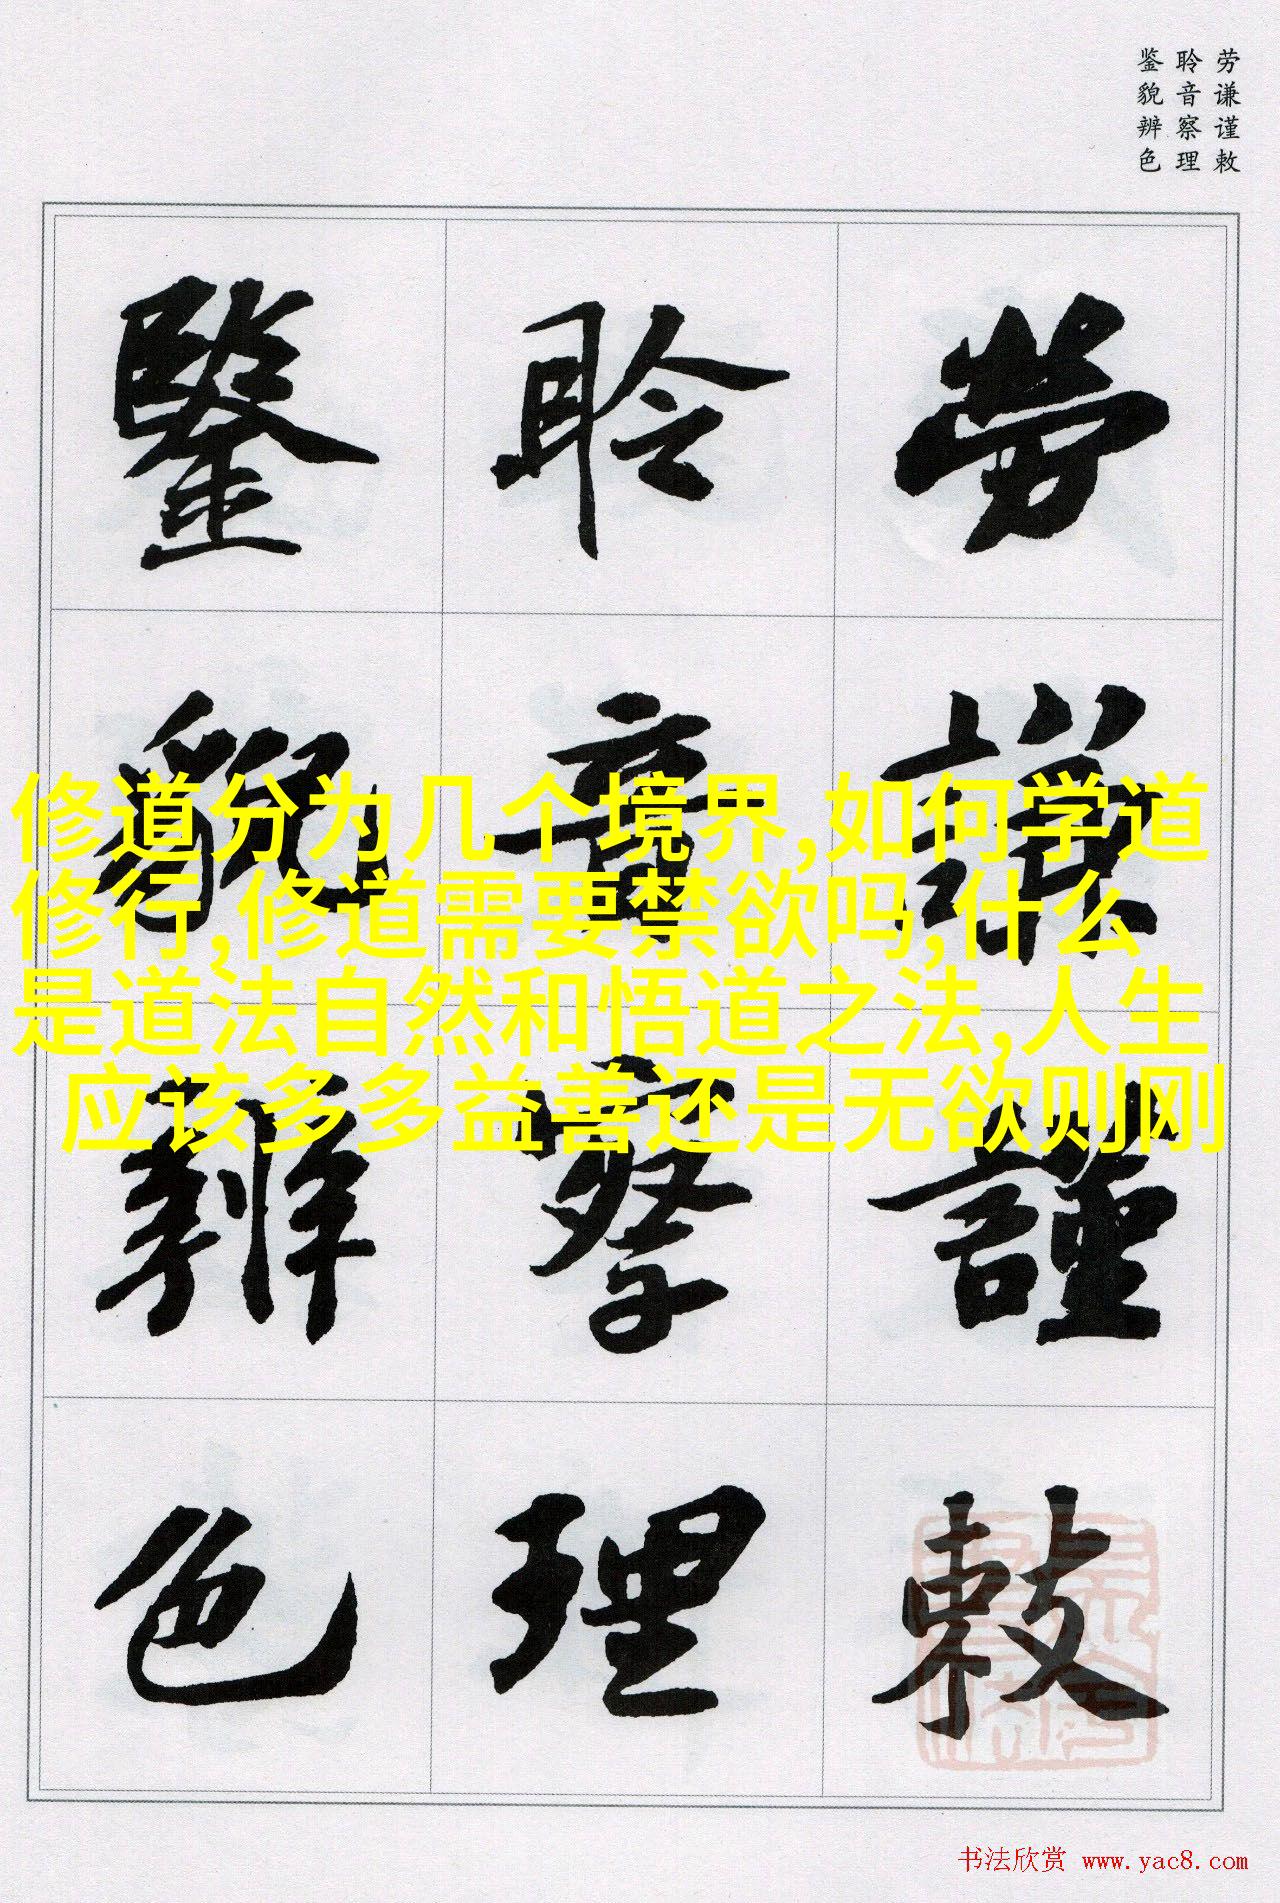 劳谦谨敕
聆音察理
鉴貌辨色
勞謙謹敕
聆音察理
鑒貌辨色
修道分为几个境界,如何学道
修行,修道需要禁欲吗,什么
是道法自然和悟道之法,人生
应该多多益善还是无欲则刚
书法欣赏 www.yac8.com